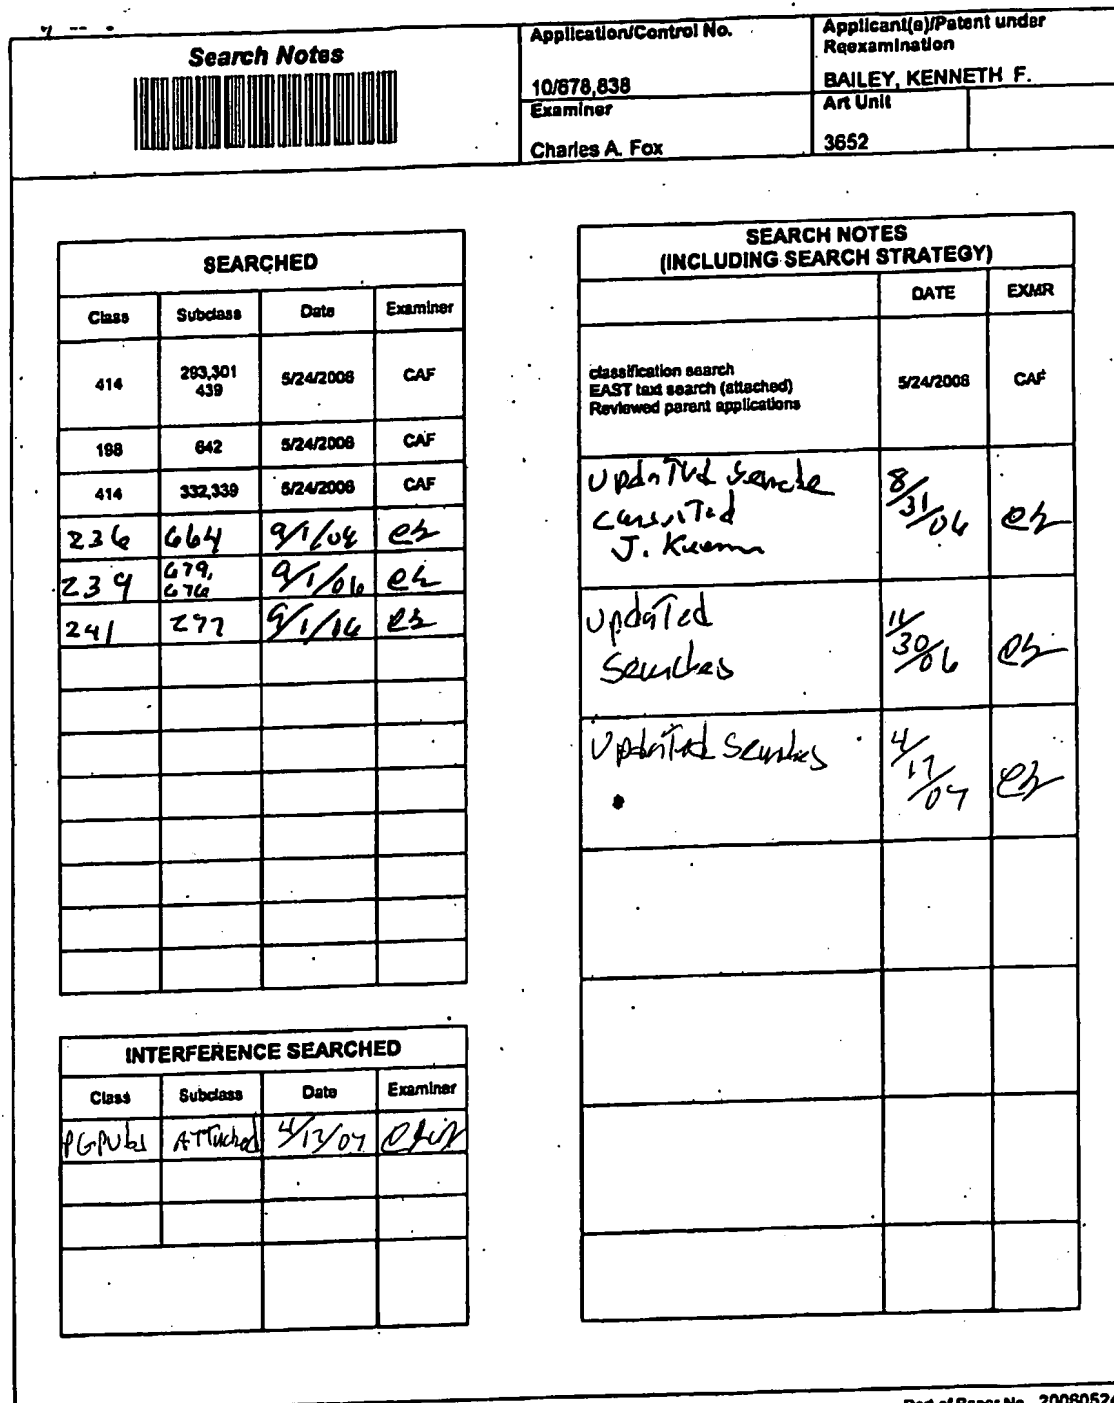 Search Notes
Application/Control No.
Applicant(s)/Patent under
Reexamination
10/678,838
BAILEY, KENNETH F.
Examiner
Art Unit
Charles A. Fox
3652
SEARCHED
Class Subclass Date Examiner
414 293,301 439 5/24/2006 CAF
198 642 5/24/2006 CAF
414 332,339 5/24/2006 CAF
236 664 9/1/06
239 679, 676 9/1/06
241 277 9/1/06
INTERFERENCE SEARCHED
Class Subclass Date Examiner
PGPubs Attached 4/17/07
SEARCH NOTES
(INCLUDING SEARCH STRATEGY)
DATE EXMR
classification search
EAST text search (attached)
Reviewed parent applications
5/24/2006 CAF
Updated Search
consulted
J. Keenan
8/31/06
Updated
Searches
11/30/06
Updated Searches
4/17/07
Part of Paper No. 20060524